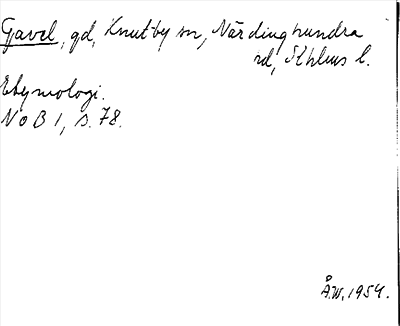 Gavel, gd, Knutby sn, Närdinghundra
hd, Sthlms l.
Etymologi.
NoB 1, s. 78.
Å.W. 1954.